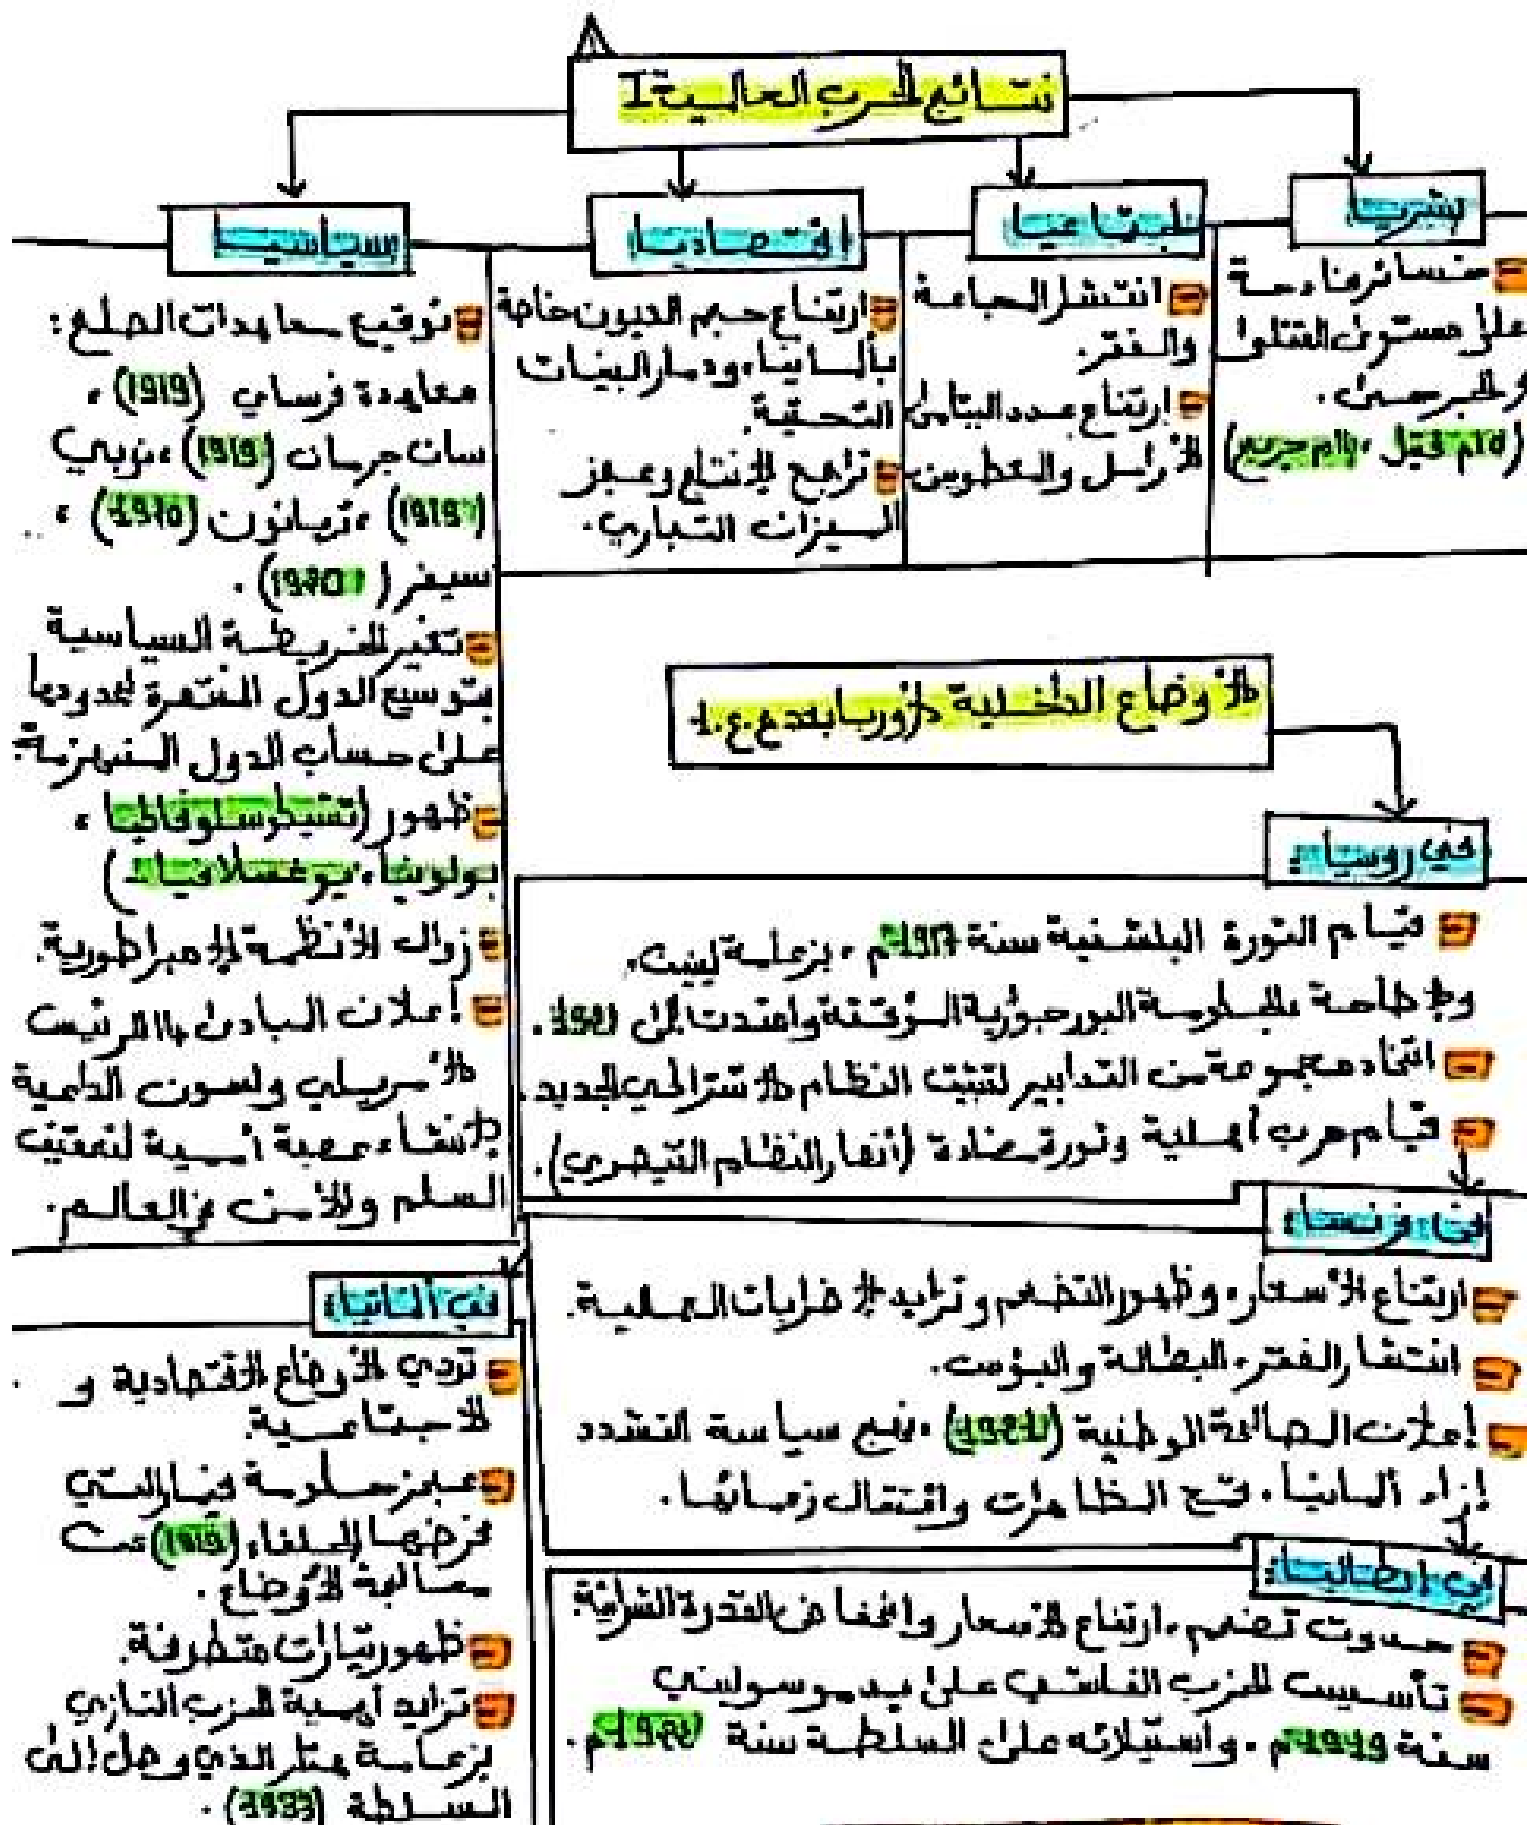 نتائج الحرب العالمية I
بشريا
خسائر فادحة
على مستوى القتلى
والجرحى.
اجتماعيا
انتشار المجاعة
والفقر.
ارتفاع عدد اليتامى
الأرامل والمعطوبين.
اقتصاديا
ارتفاع حجم الديون خاصة
بألمانيا، ودمار البنيات
التحتية.
تراجع الإنتاج وعجز
الميزان التجاري.
سياسيا
توقيع معاهدات الصلح:
معاهدة فرساي (1919)،
سان جرمان (1919)، نويي
(1919)، تريانون (1920)،
سيفر (1920).
تغير الخريطة السياسية
بتوسيع الدول المنتصرة لحدودها
على حساب الدول المنهزمة.
ظهور (تشيكوسلوفاكيا،
بولونيا، يوغسلافيا)
زوال الأنظمة الإمبراطورية.
إعلان المبادئ 14 للرئيس
الأمريكي ولسون الداعية
لإنشاء عصبة أممية لتحقيق
السلم والأمن في العالم.
الأوضاع الداخلية لأوربا بعد ح.ع.1
في روسيا:
قيام الثورة البلشفية سنة 1917م، بزعامة لينين،
والإطاحة بالحكومة البورجوازية المؤقتة وامتدت إلى 1921.
اتخاذ مجموعة من التدابير لتثبيت النظام الاشتراكي الجديد.
قيام حرب أهلية وثورة مضادة (أنصار النظام القيصري).
في فرنسا:
ارتفاع الأسعار، وظهور التضخم وتزايد الإضرابات العمالية.
انتشار الفقر، البطالة والبؤس.
إعلان المصالحة الوطنية، نهج سياسة التشدد
إزاء ألمانيا، قمع المظاهرات واعتقال زعمائها.
في إيطاليا:
حدوث تضخم، ارتفاع الأسعار وانخفاض القدرة الشرائية
تأسيس الحزب الفاشي على يد موسوليني
سنة 1919م، واستيلائه على السلطة سنة 1922م.
في ألمانيا:
تردي الأوضاع الاقتصادية و
الاجتماعية.
عجز حكومة فيمار التي
فرضها الحلفاء (1919) عن
معالجة الأوضاع.
ظهور تيارات متطرفة.
تزايد أهمية الحزب النازي
بزعامة هتلر الذي وصل إلى
السلطة (1933).